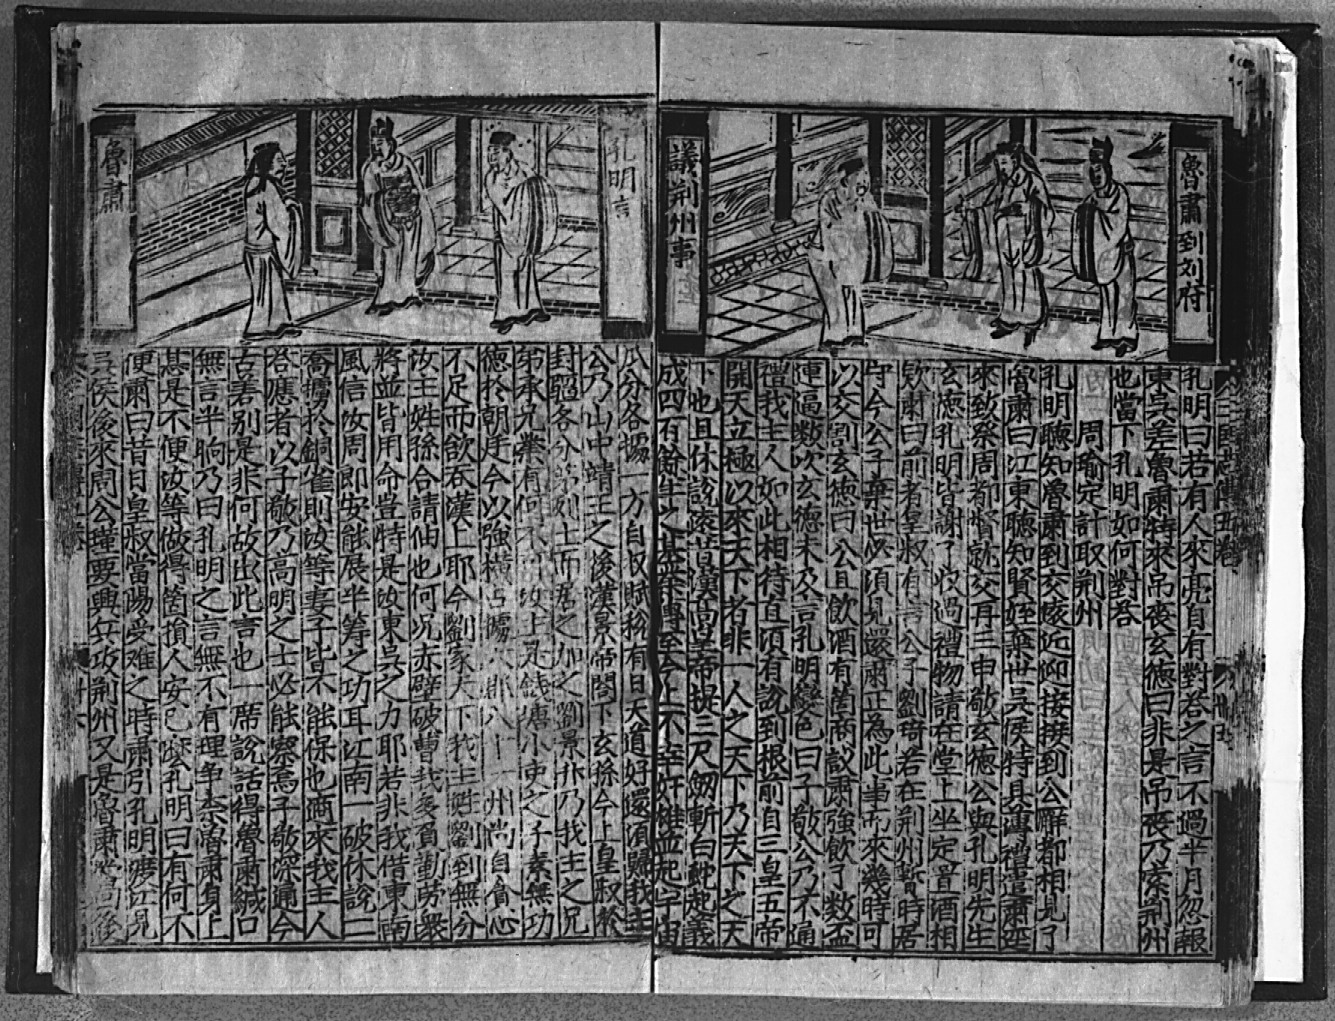 魯肅到刘府
議荆州事
孔明曰若有人來亮自有對荅之言不過半月忽報
東吳差魯肅特來吊丧玄德曰非是吊丧乃索荆州
也當下孔明如何對荅
周瑜定計取荆州
孔明聽知魯肅到交接近迎接接到公廨都相見了
魯肅曰江東聽知賢姪棄世吳侯特具薄礼遣肅逕
來致祭周都督就交再三申敬玄德公與孔明先生
玄德孔明皆謝了收過禮物請在堂上坐定置酒相
欵肅曰前者皇叔有言公子劉琦若在荆州暫時居
守今公子棄世必須見還肅正為此事而來幾時可
以交割玄德曰公且飲酒有箇商議肅強飲了数盃
連逼数次玄德未及言孔明變色曰子敬公乃不通
禮我主人如此相待直須有說到根前自三皇五帝
開天立極以來天下者非一人之天下乃天下之天
下也且休說遠昔漢高皇帝提三尺劒斬白蛇起義
成四百餘年之基業傳至今上不幸奸雄並起宇宙
孔明言
魯肅
瓜分各據 方自収賦稅有日天道好還須歸我主
公乃山中靖王之後漢景帝閣下玄孫今上皇叔於
封疆各分茅列土而居之加之劉景升乃我主之兄
弟承兄業有何不 汝主是錢塘小吏之子素無功
德於朝廷今以強橫占據六郡八十一州尚自貪心
不足而欲吞漢上耶今劉家天下我主姓劉到無分
汝主姓孫合請他也何况赤壁破曹我多負勤劳衆
將並皆用命豈特是汝東吳之力耶若非我借東南
風信汝周郎安能展半筹之功耳江南一破休說二
喬擄於銅雀則汝等妻子皆不能保也適來我主人
荅應者以子敬乃高明之士必能察焉子敬深通今
古善别是非何故出此言也一席說話得魯肅緘口
無言半晌乃曰孔明之言無不有理争柰魯肅身上
甚是不便汝等做得箇損人安己麽孔明曰有何不
便肅曰昔日皇叔當陽受难之時肅引孔明渡江見
吳侯後來周公瑾要興兵攻荆州又是魯肅當後